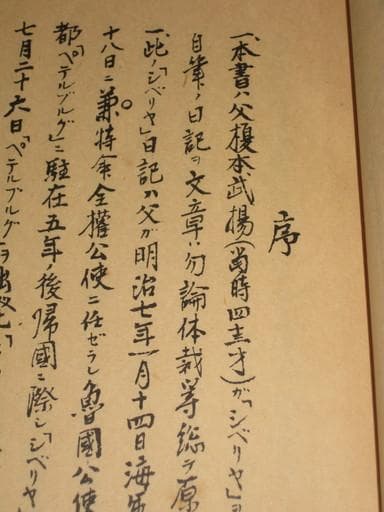 序
一、本書ハ父榎本武揚(當時四十三才)ガ「シベリヤ」ヨ
自筆ノ日記ヲ文章ハ勿論体裁等総テ原
一、此ノ「シベリヤ」日記ハ父ガ明治七年一月十四日海軍
十八日ニ兼特命全權公使ニ任ゼラレ魯國公使
都「ペテルブルグ」ニ駐在五年後帰國ニ際シ「シベリヤ」
七月二十六日「ペテルブルグ」ヲ出發シ